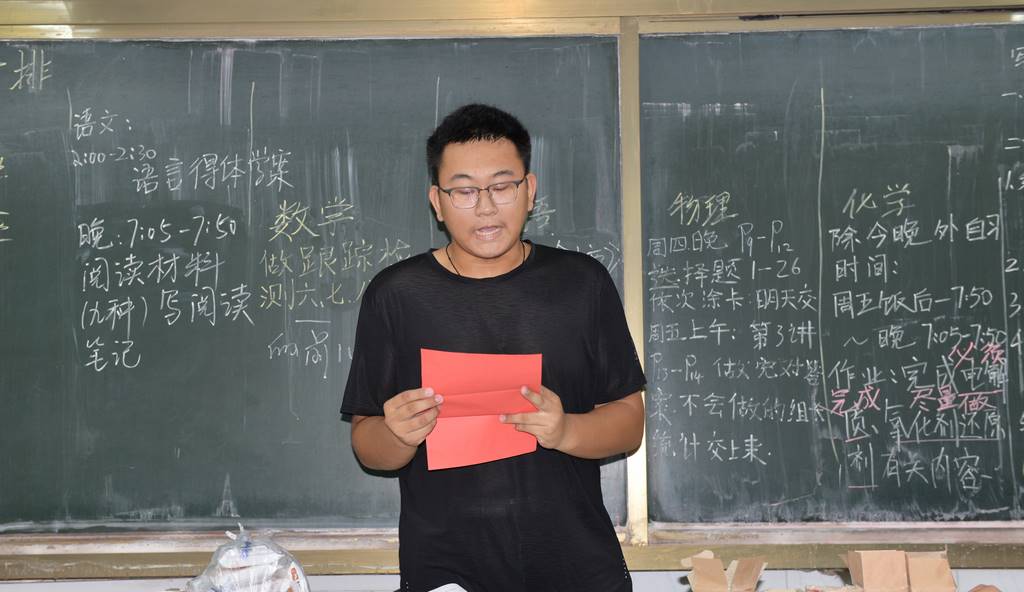 排
语文:
2:00-2:30
语言得体学案
晚:7:05-7:50
阅读材料
(九种)写阅读
笔记
数学
做跟踪检
测六、七、八
物理
周四晚 P9-P12
选择题1-26
依次涂卡:明天交
周五上午:第3讲
P13-P14 做完对答
案,不会做的组长
统计交上来.
化学
除今晚外自习
时间:
周五饭后-7:50
～晚 7:05-7:50
作业:完成电解
完成 尽量做
质、氧化剂还原
剂有关内容
一、
二
1.
2.
3.
4.